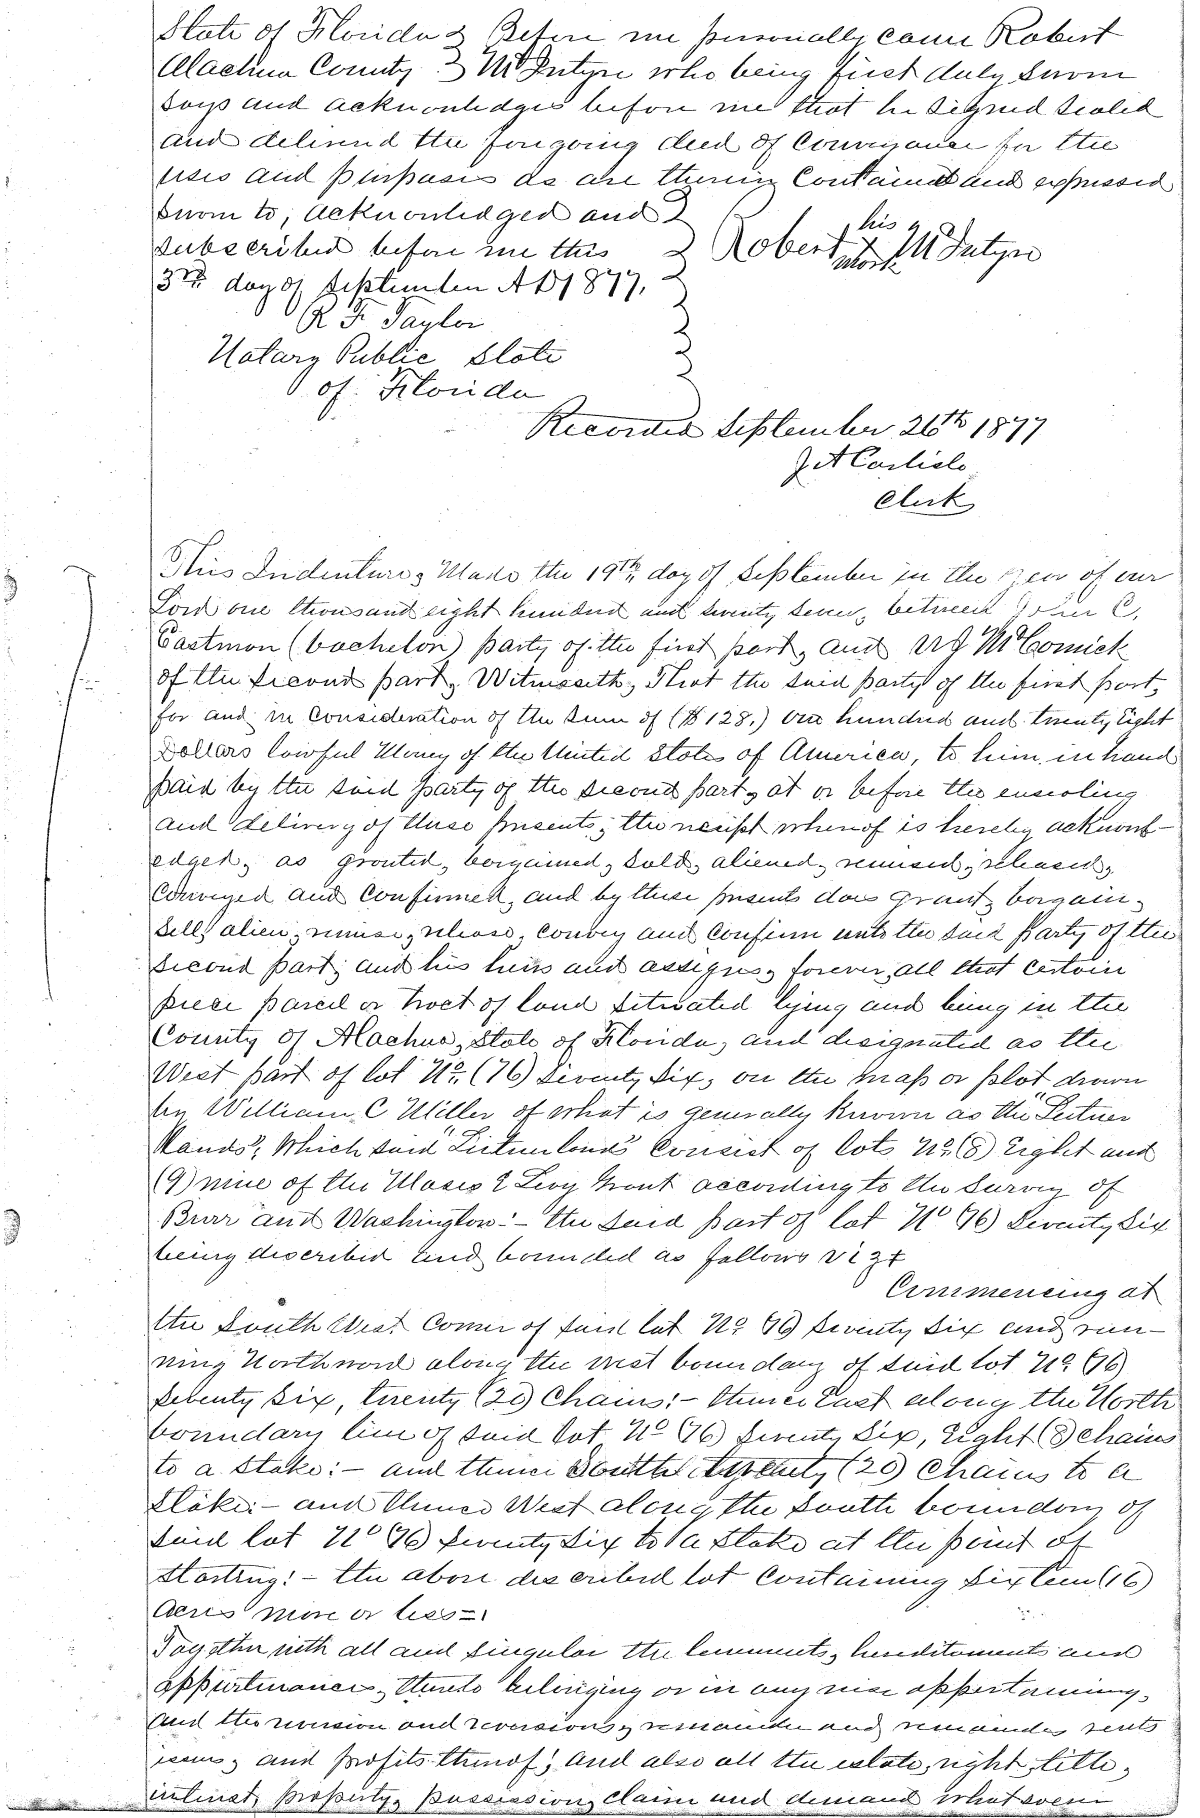 State of Florida } Before me personally came Robert
Alachua County } McIntyre who being first duly sworn
says and acknowledges before me that he signed sealed
and delivered the foregoing deed of Conveyance for the
uses and purposes as are therein Contained and expressed
sworn to, acknowledged and }
subscribed before me this } Robert his x mark McIntyre
3rd day of September AD 1877. }
R F Taylor
Notary Public State
of Florida
Recorded September 26th 1877
J A Carlisle
Clerk
This Indenture, Made the 19th day of September in the year of our
Lord one thousand eight hundred and seventy seven, between John C.
Eastmon (bachelor) party of the first part, and W J McComick
of the second part, Witnesseth, That the said party of the first part,
for and in consideration of the sum of ($128.) one hundred and twenty Eight
Dollars lawful Money of the United States of America, to him in hand
paid by the said party of the second part, at or before the ensealing
and delivery of these presents, the receipt whereof is hereby acknowl-
edged, as granted, bargained, sold, aliened, remised, released,
Conveyed and Confirmed, and by these presents does grant, bargain,
sell, alien, remise, release, convey and Confirm unto the said party of the
second part, and his heirs and assigns, forever, all that certain
piece parcel or tract of land situated lying and being in the
County of Alachua, State of Florida, and designated as the
West part of lot No. (76) Seventy Six, on the map or plot drawn
by William C Miller of what is generally known as the "Leitner
Lands", Which said "Leitner lands" Consist of lots No (8) Eight and
(9) nine of the Moses E Levy Grant according to the survey of
Burr and Washington:- the said part of lot No (76) Seventy Six
being described and bounded as follows vizt
Commencing at
the South West Corner of said lot No (76) Seventy Six and run-
ning Northward along the west boundary of said lot No (76)
Seventy Six, twenty (20) Chains:- thence East along the North
boundary line of said lot No (76) Seventy Six, Eight (8) chains
to a stake:- and thence South twenty (20) Chains to a
Stake:- and thence West along the South boundary of
said lot No (76) Seventy Six to a stake at the point of
starting:- the above described lot Containing Sixteen (16)
Acres more or less=
Together with all and singular the tenements, hereditaments and
appurtenances, thereto belonging or in any wise appertaining,
and the reversion and reversions, remainder and remainders rents
issues, and profits thereof, and also all the estate, right, title,
interest, property, possession, claim and demand whatsoever